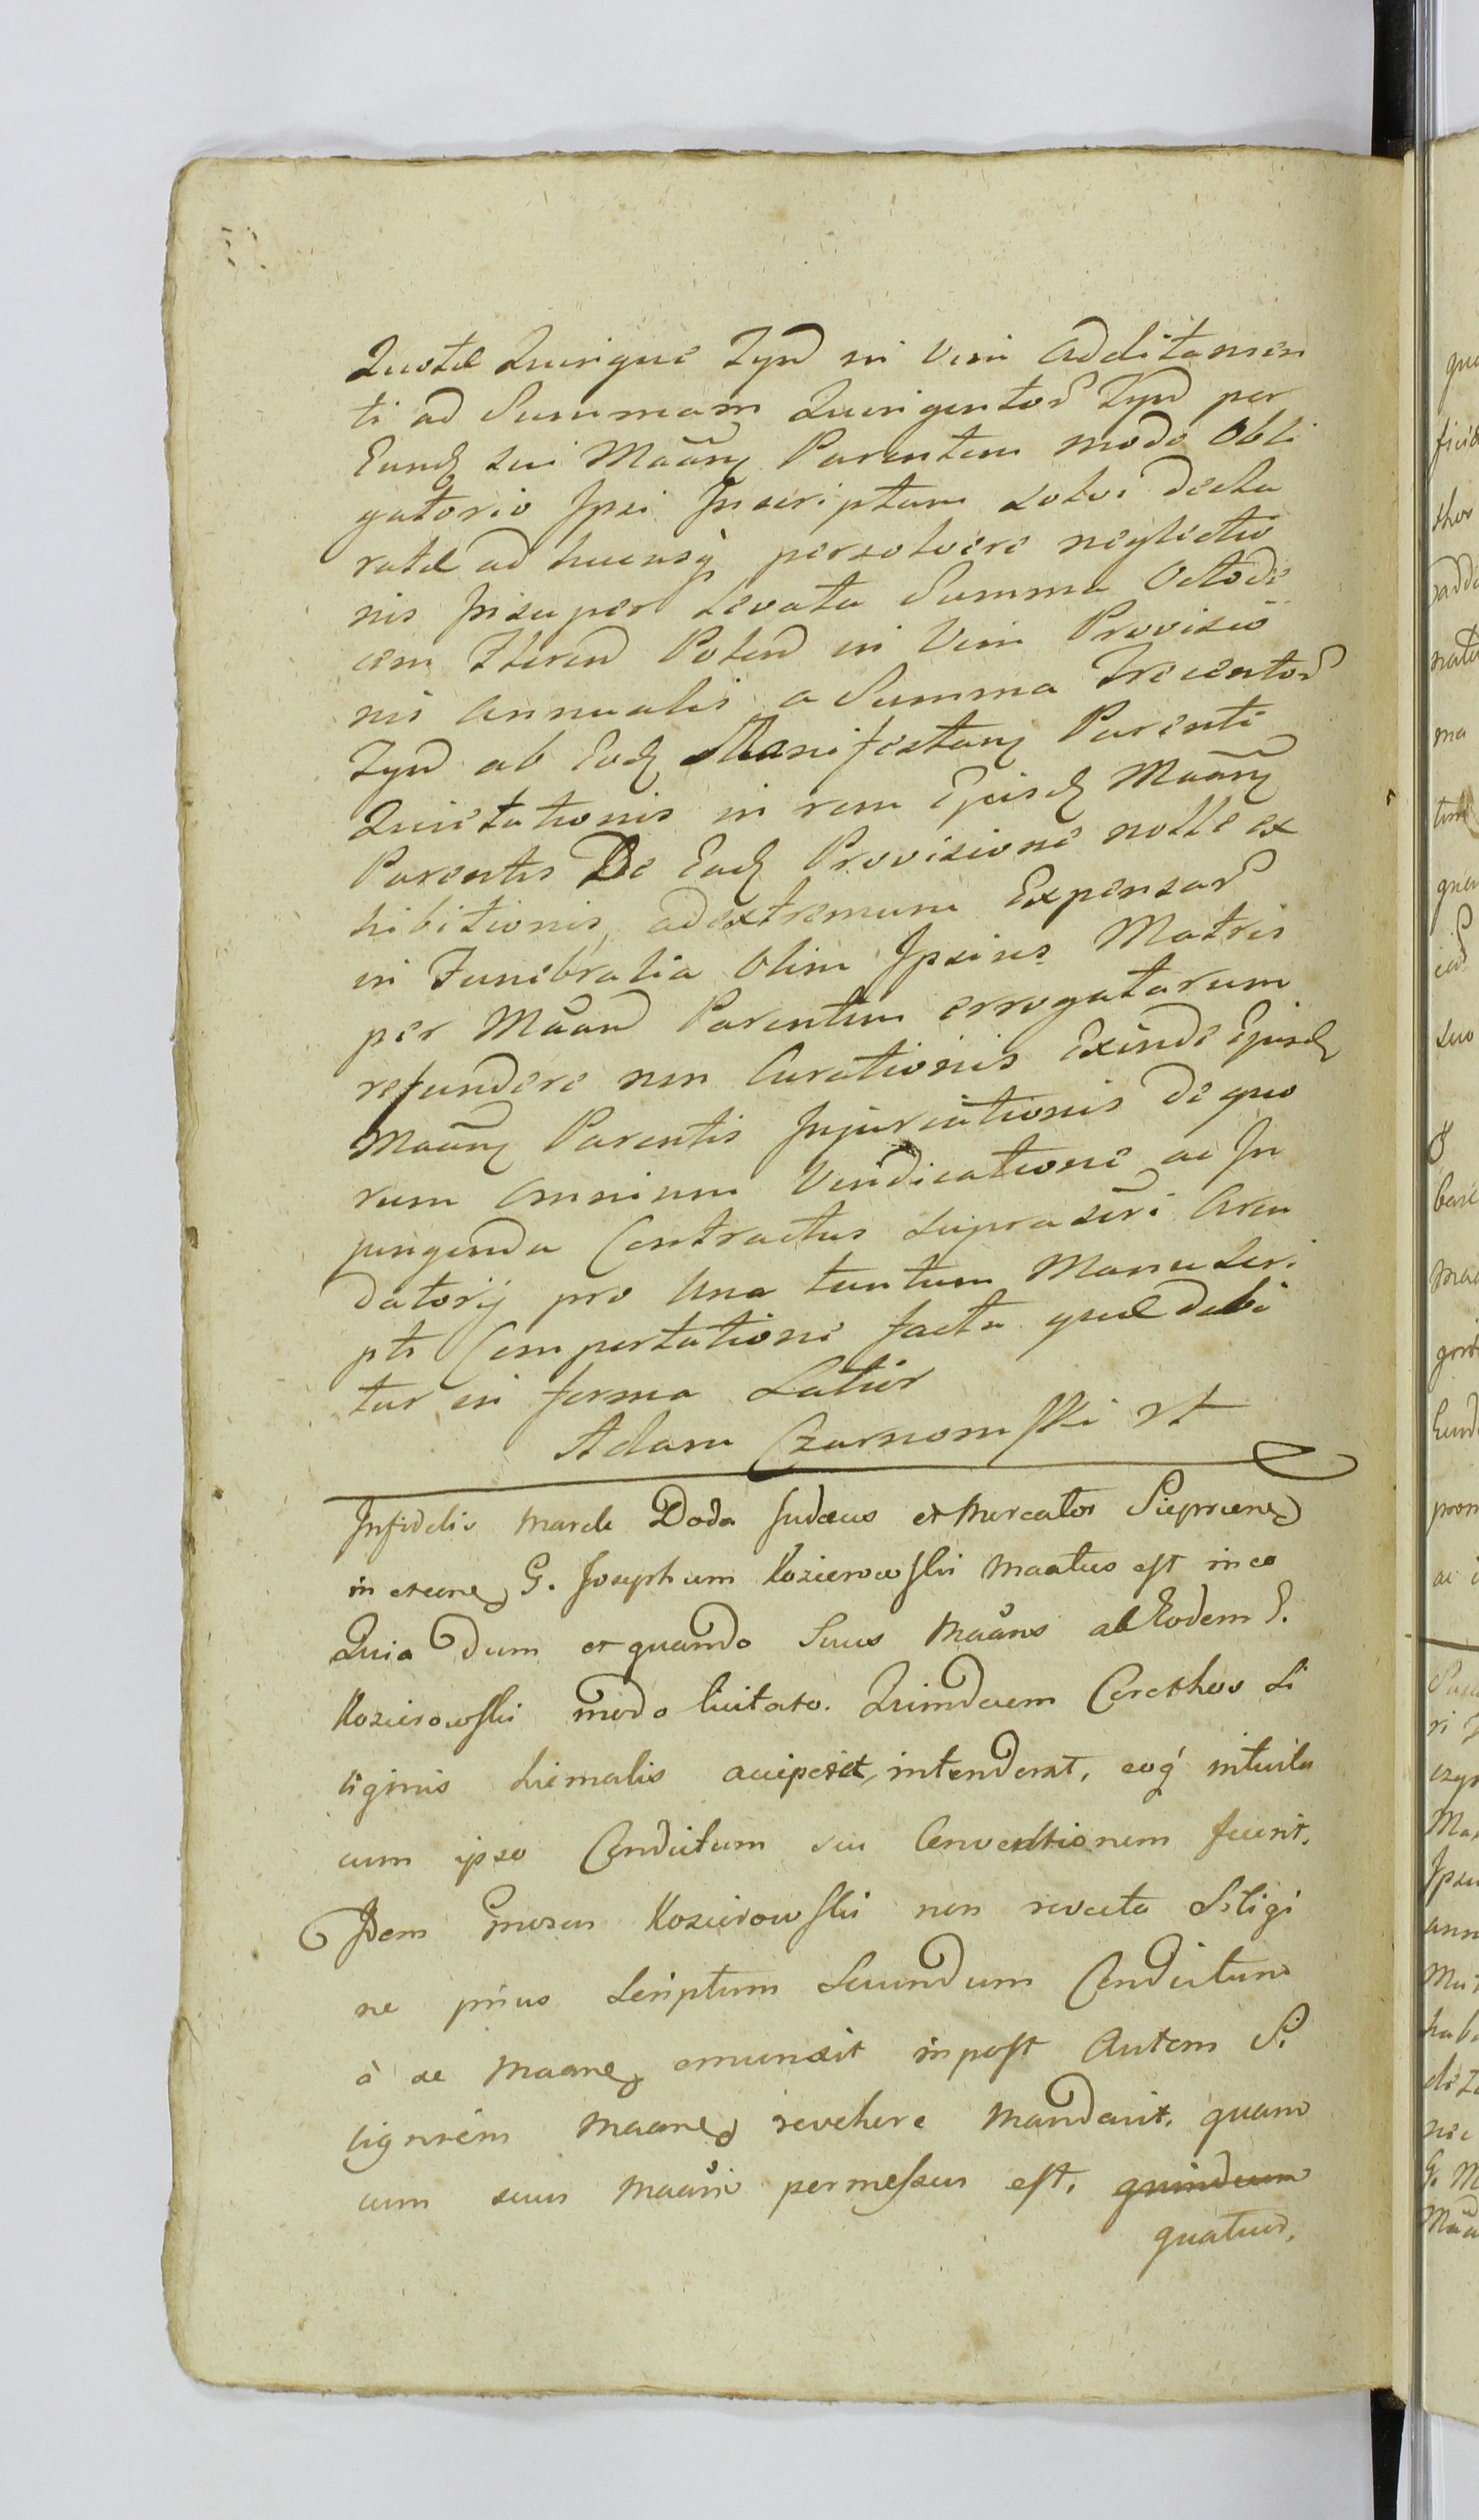 Quotæ Quinque Tynd in Vim additamen
ti ad Summam Quingentor Tynd per
Eund sui Maañ Parentem modo Obli
gatorio Ipsi Inscriptam solvi decla
ratæ ad hucusq persolvere neglectio
nis Insuper Levata Summa Octode
cem Floren Polon in Vim Provisio
nis annualis a Summa Trecentor
Tynd ab Eod Manifestan Parenti
Quietationis in rem Ejusd Maañ
Parentis De Ead Provisione nolle ex
hibitionis, ad extremum Expensar
in Funebralia Olim Ipsius Matris
per Maan Parentem errogatarum
refundere non Curationis Exinde Ejusd
Maañ Parentis Injuriationis de quo
rum Omnium Vindicatione ac In
pungenda Contractus supra scri Aren
datorij pro Una tantum Manu Scri
pti Comportatione facta quæ dabi
tur in forma Latior
Adam Czarnomski
Infidelis Marek Doda Judæus et Mercator
in et cone G. Josephum Kozierowski Maatus est in eo
Quia dum et quando Suus Maans ab Eodem G.
Kozierowski modo licitato. Quindecem Corethos Si
liginis hiemalis acciperet intenderat, eoq intuitu
cum ipso Condictum seu Conventionem fecerit.
Idem Gnosus Kozierowski non revecta Siligi
ne prius Scriptum Secundum Condictum
à se Maane emunxit in post Autem Si
liginem Maane revehere Mandavit. quam
cum suus Maans permessus est, quindecem
quatuor,